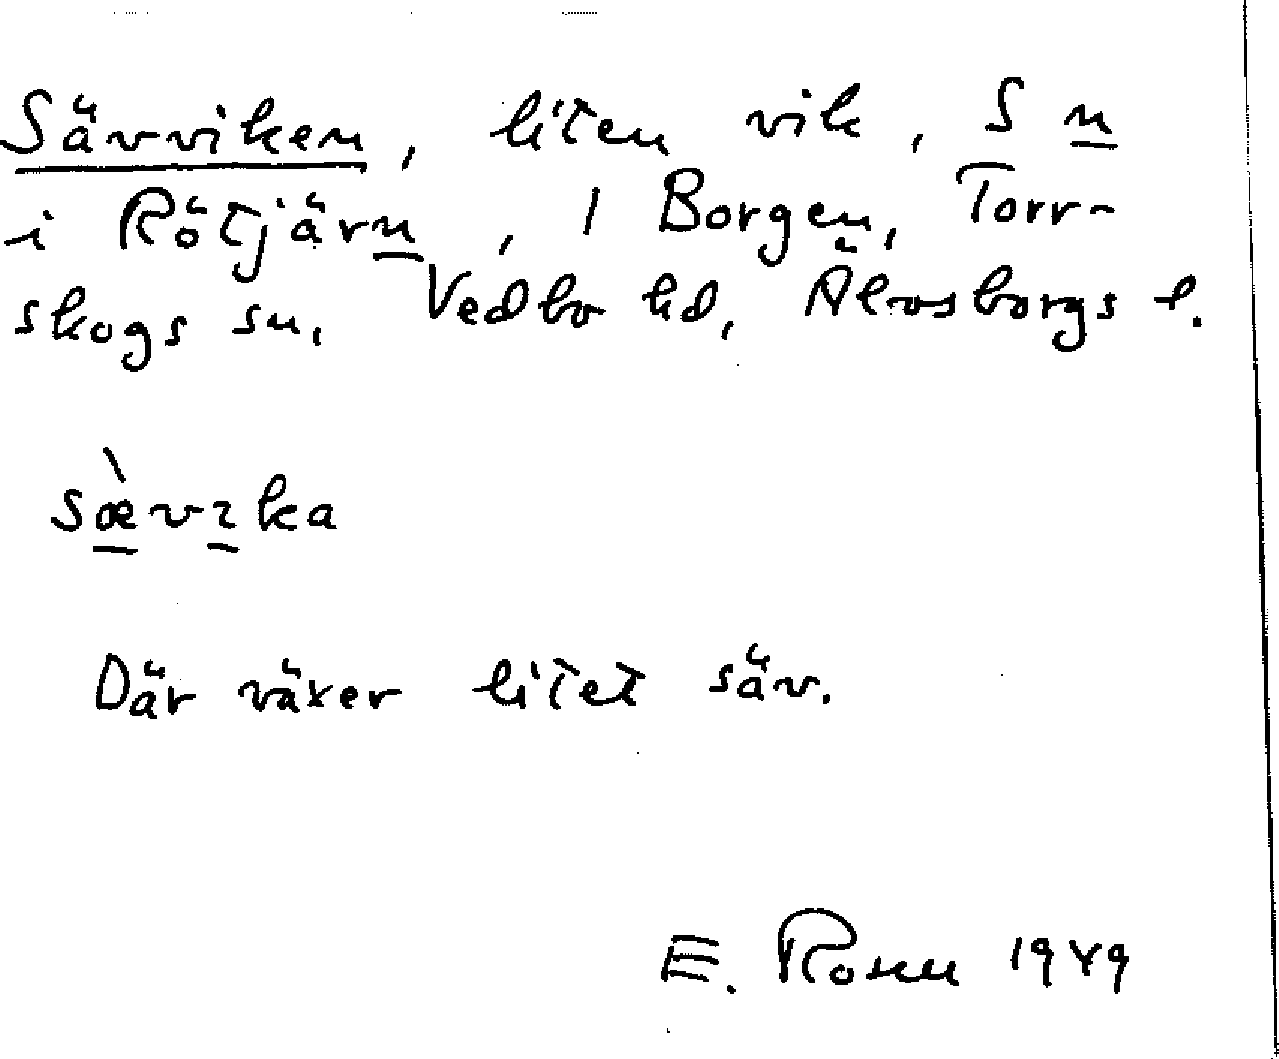 Sävviken, liten vik, S n
i Rötjärn, 1 Borgen, Torr-
skogs sn, Vedbo hd, Älvsborgs l.
sæ̀vıka
Där växer litet säv.
E. 1949